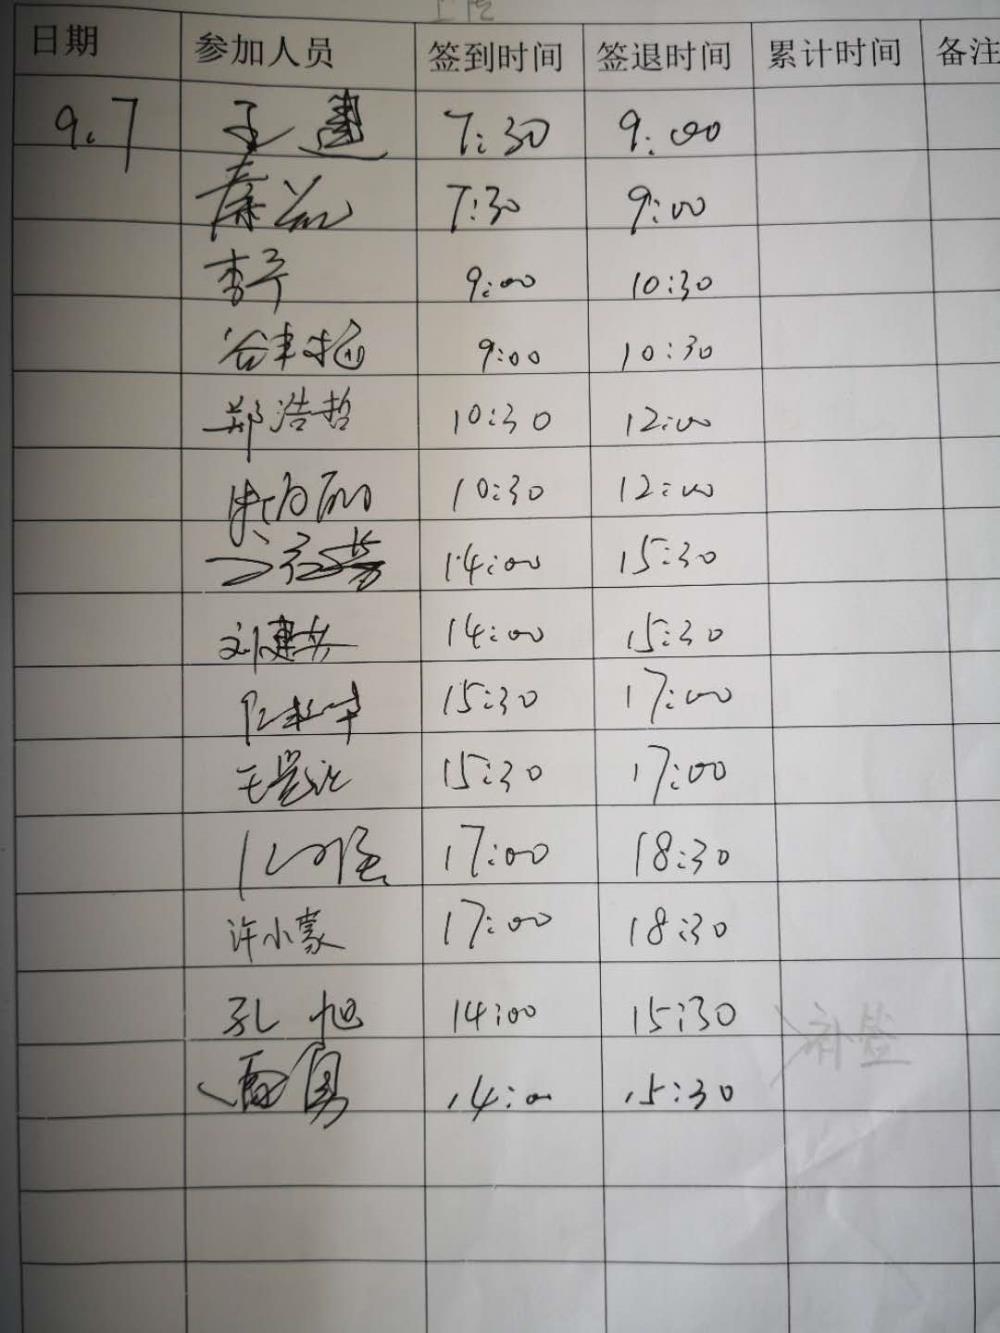 日期 参加人员 签到时间 签退时间 累计时间 备注
9.7 王建 7:30 9:00
秦 7:30 9:00
李宁 9:00 10:30
谷丰 9:00 10:30
郑浩哲 10:30 12:00
10:30 12:00
14:00 15:30
刘建 14:00 15:30
15:30 17:00
王 15:30 17:00
17:00 18:30
许小蒙 17:00 18:30
孔旭 14:00 15:30
勇 14:00 15:30
补签